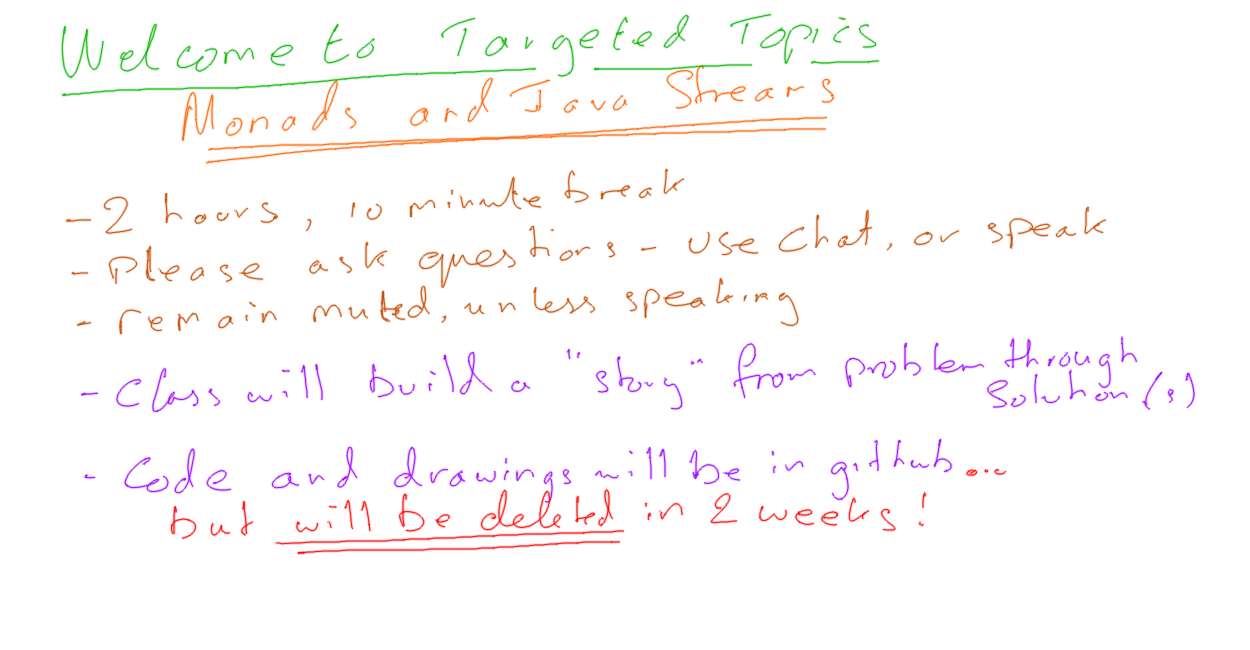 Welcome to Targeted Topics
Monads and Java Streams
- 2 hours, 10 minute break
- Please ask questions - use chat, or speak
- remain muted, unless speaking
- Class will build a "story" from problem through
solution(s)
- Code and drawings will be in github...
but will be deleted in 2 weeks!